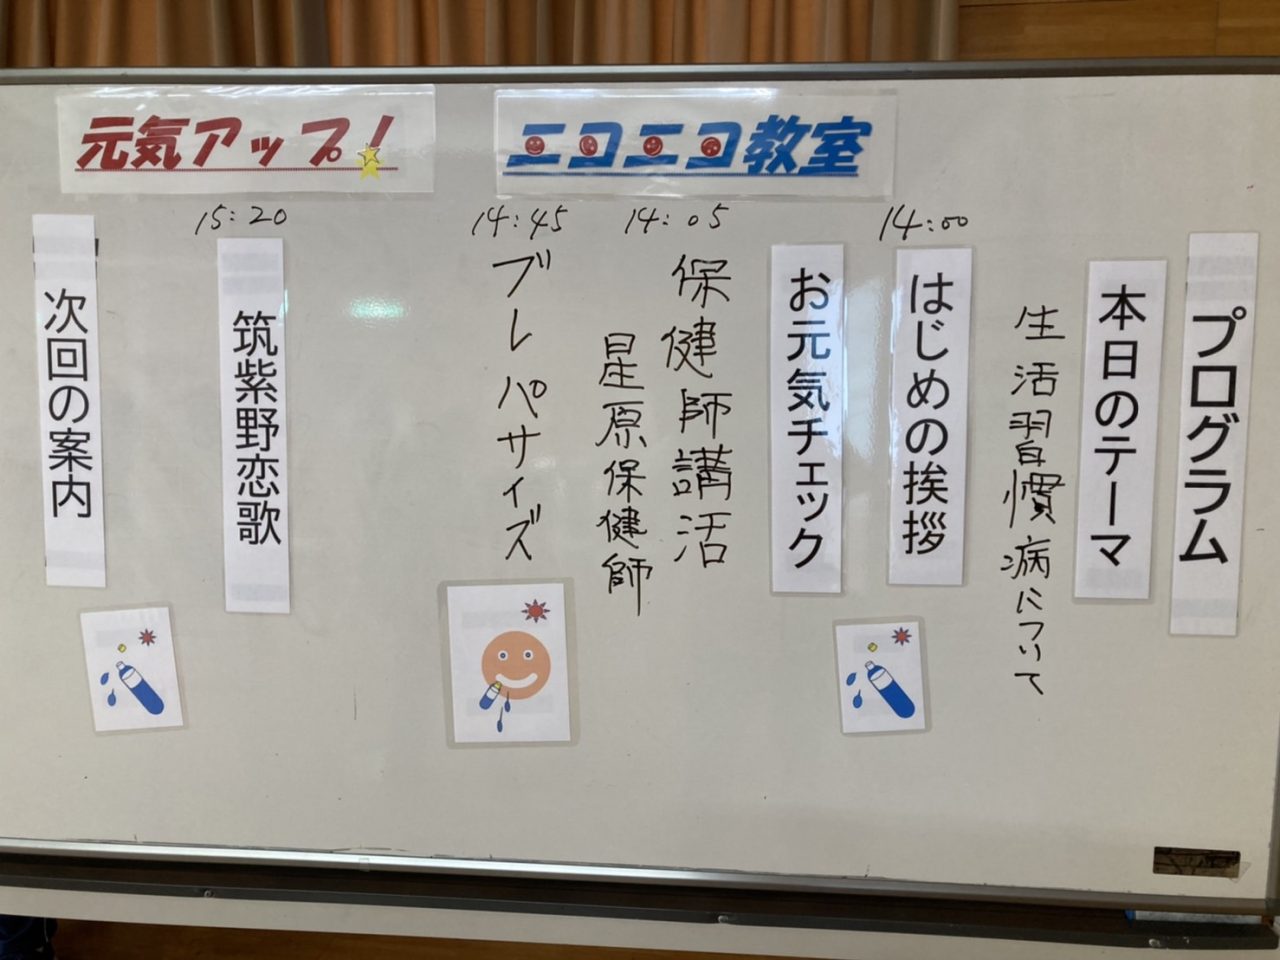 元気アップ!
ニコニコ教室
プログラム
本日のテーマ
生活習慣病について
14:00
はじめの挨拶
お元気チェック
14:05
保健師講活
星原保健師
14:45
ブレパサイズ
15:20
筑紫野恋歌
次回の案内